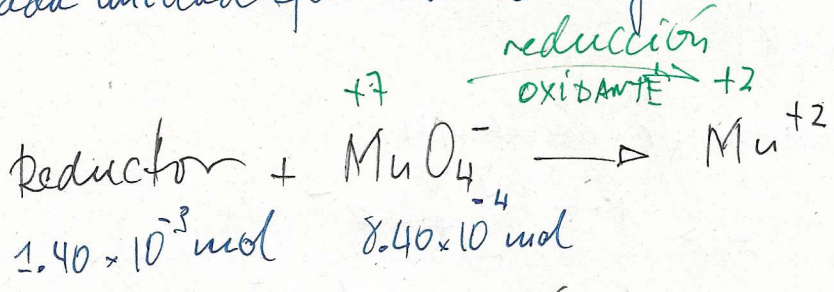 reducción
+7 OXIDANTE +2
Reductor + MnO₄⁻ → Mn⁺²
1.40 × 10⁻³ mol 8.40 × 10⁻⁴ mol